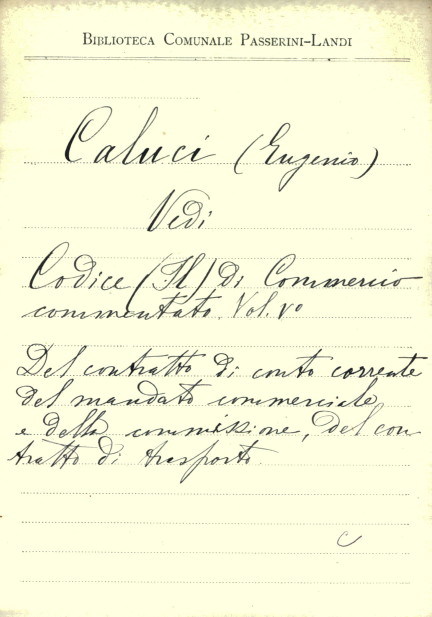 BIBLIOTECA COMUNALE PASSERINI-LANDI
Caluci (Eugenio)
Vedi
Codice (Il) di Commercio
commentato. Vol. Vº
Del contratto di conto corrente
del mandato commerciale
e della commissione, del con
tratto di trasporto.
C